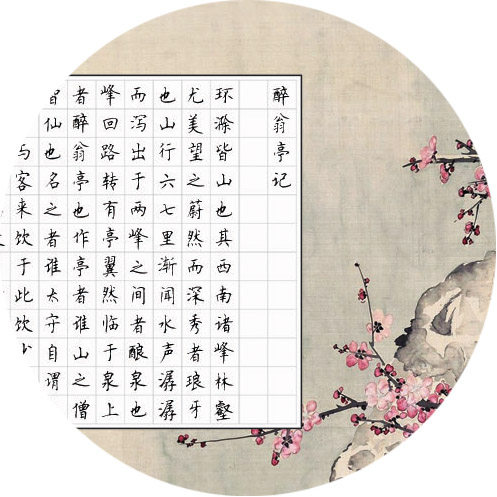 醉翁亭记
环滁皆山也其西南诸峰林壑
尤美望之蔚然而深秀者琅牙
也山行六七里渐闻水声潺潺
而泻出于两峰之间者酿泉也
峰回路转有亭翼然临于泉上
者醉翁亭也作亭者谁山之僧
仙也名之者谁太守自谓
与客来饮于此饮